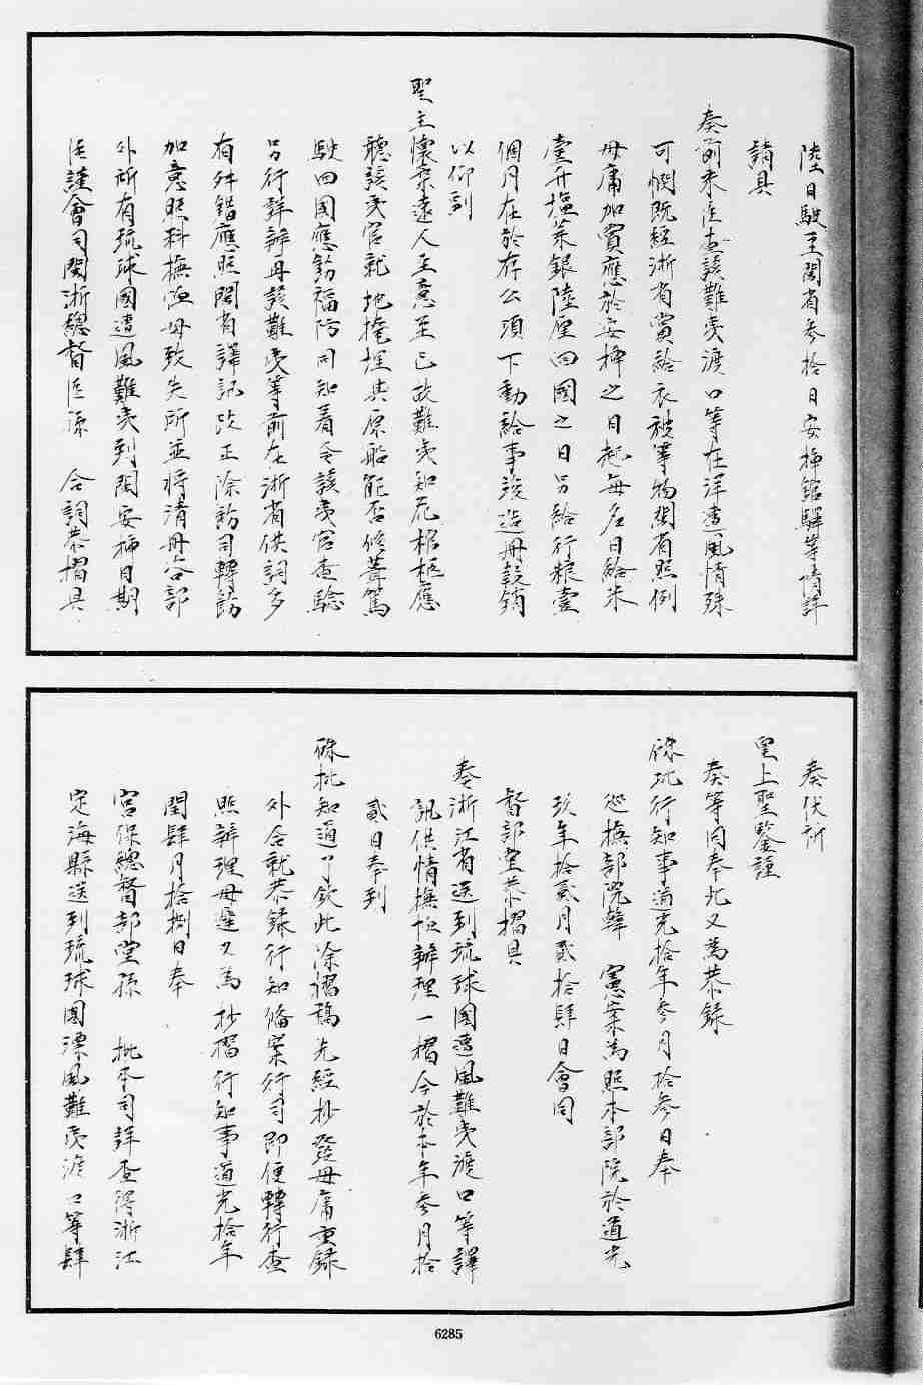 陸日駛至閩省參拾日安揷館驛等情詳
請具
奏前來臣查該難夷渡口等在洋遭風情殊
可憫既經浙省賞給衣被等物閩省照例
毋庸加賞應於安揷之日起每名日給米
壹升塩菜銀陸厘回國之日另給行粮壹
個月在於存公項下動給事竣造册報銷
以仰副
聖主懷柔遠人至意至已故難夷知花棺柩應
聽該夷官就地掩埋其原船能否修葺駕
駛回國應飭福防同知着令該夷官查驗
另行詳辦再該難夷等前在浙省供詞多
有舛錯應照閩省譯訊改正除飭司轉飭
加意照料撫恤毋致失所並將清册咨部
外所有琉球國遭風難夷到閩安揷日期
臣謹會同閩浙總督臣孫 合詞恭摺具
奏伏祈
皇上聖鑒謹
奏等因奉此又為恭錄
硃批行知事道光拾年參月拾參日奉
巡撫部院韓 憲案為照本部院於道光
玖年拾貳月貳拾肆日會同
督部堂恭摺具
奏浙江省送到琉球國遭風難夷渡口等譯
訊供情撫恤辦理一摺今於本年參月拾
貳日奉到
硃批知道了欽此除摺稿先經抄發毋庸重錄
外合就恭錄行知備案行司即便轉行查
照辦理毋違又為抄摺行知事道光拾年
閏肆月拾捌日奉
宮保總督部堂孫 批本司詳查得浙江
定海縣送到琉球國漂風難夷渡口等肆
6285